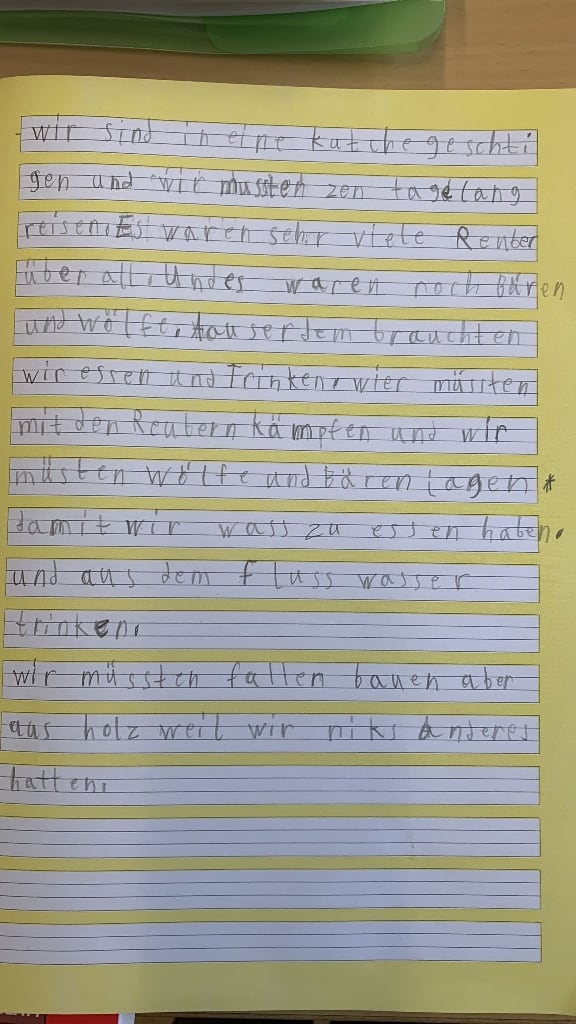 wir sind in eine kutche geschti
gen und wir mussten zen tagelang
reisen. Es waren sehr viele Reuber
über all. Und es waren noch Bären
und wölfe. auserdem brauchten
wir essen und Trinken. wier müssten
mit den Reubern kämpfen und wir
müsten wölfe und Bären jagen *
damit wir wass zu essen haben.
und aus dem fluss wasser
trinken.
wir müssten fallen bauen aber
aus holz weil wir niks anderes
hatten.